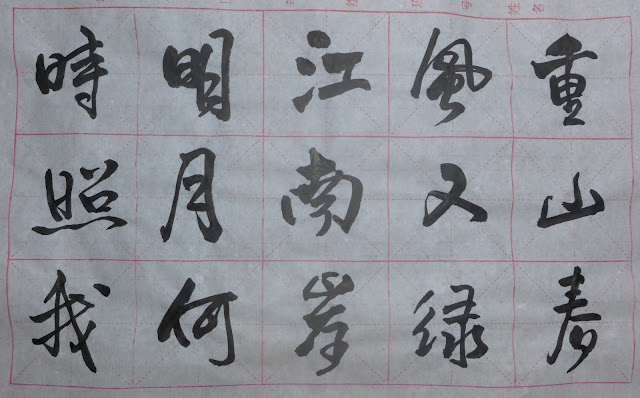 重山春
風又綠
江南岸
明月何
時照我